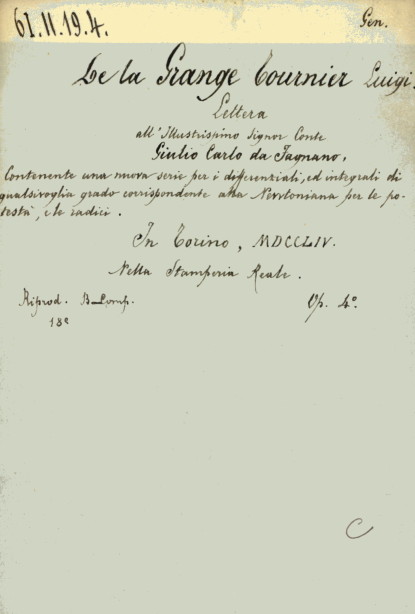 61.11.19.4.
Gen.
De la Grange Tournier Luigi.
Lettera
all'Illustrissimo Signor Conte
Giulio Carlo da Fagnano,
Contenente una nuova serie per i differenziali, ed integrali di
qualsivoglia grado corrispondente alla Newtoniana per le po-
testà, e le radici.
In Torino, MDCCLIV.
Nella Stamperia Reale.
Riprod. B_comp. Op. 4º.
18ª
C